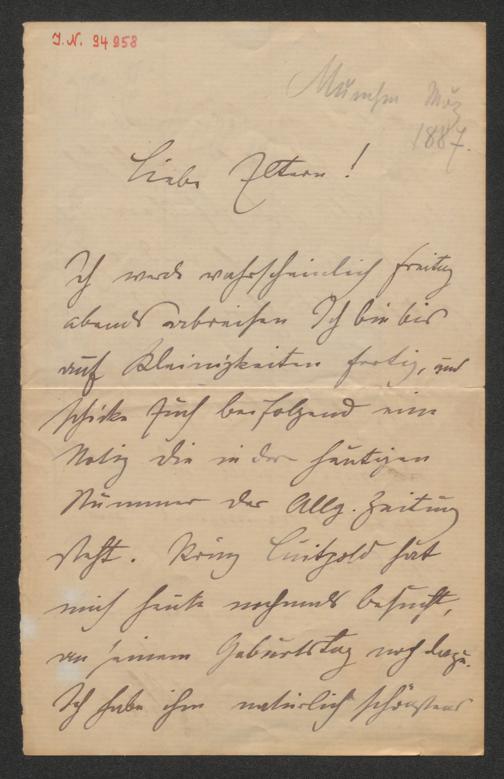 J.N. 94958
München März
1887.
Liebe Eltern!
Ich werde wahrscheinlich freitag
abends abreisen Ich bin bis
auf Kleinigkeiten fertig, und
schicke Euch beifolgend eine
Notiz die in der heutigen
Nummer der Allg. Zeitung
steht. Prinz Luitpold hat
mich heute nochmals besucht,
an seinem Geburtstag noch dazu.
Ich habe ihm natürlich schönstens